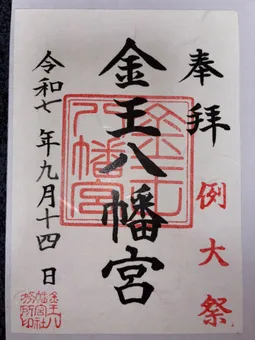 奉拝
例大祭
金王八幡宮
金王八幡宮
令和七年九月十四日
金王八幡宮社務所印